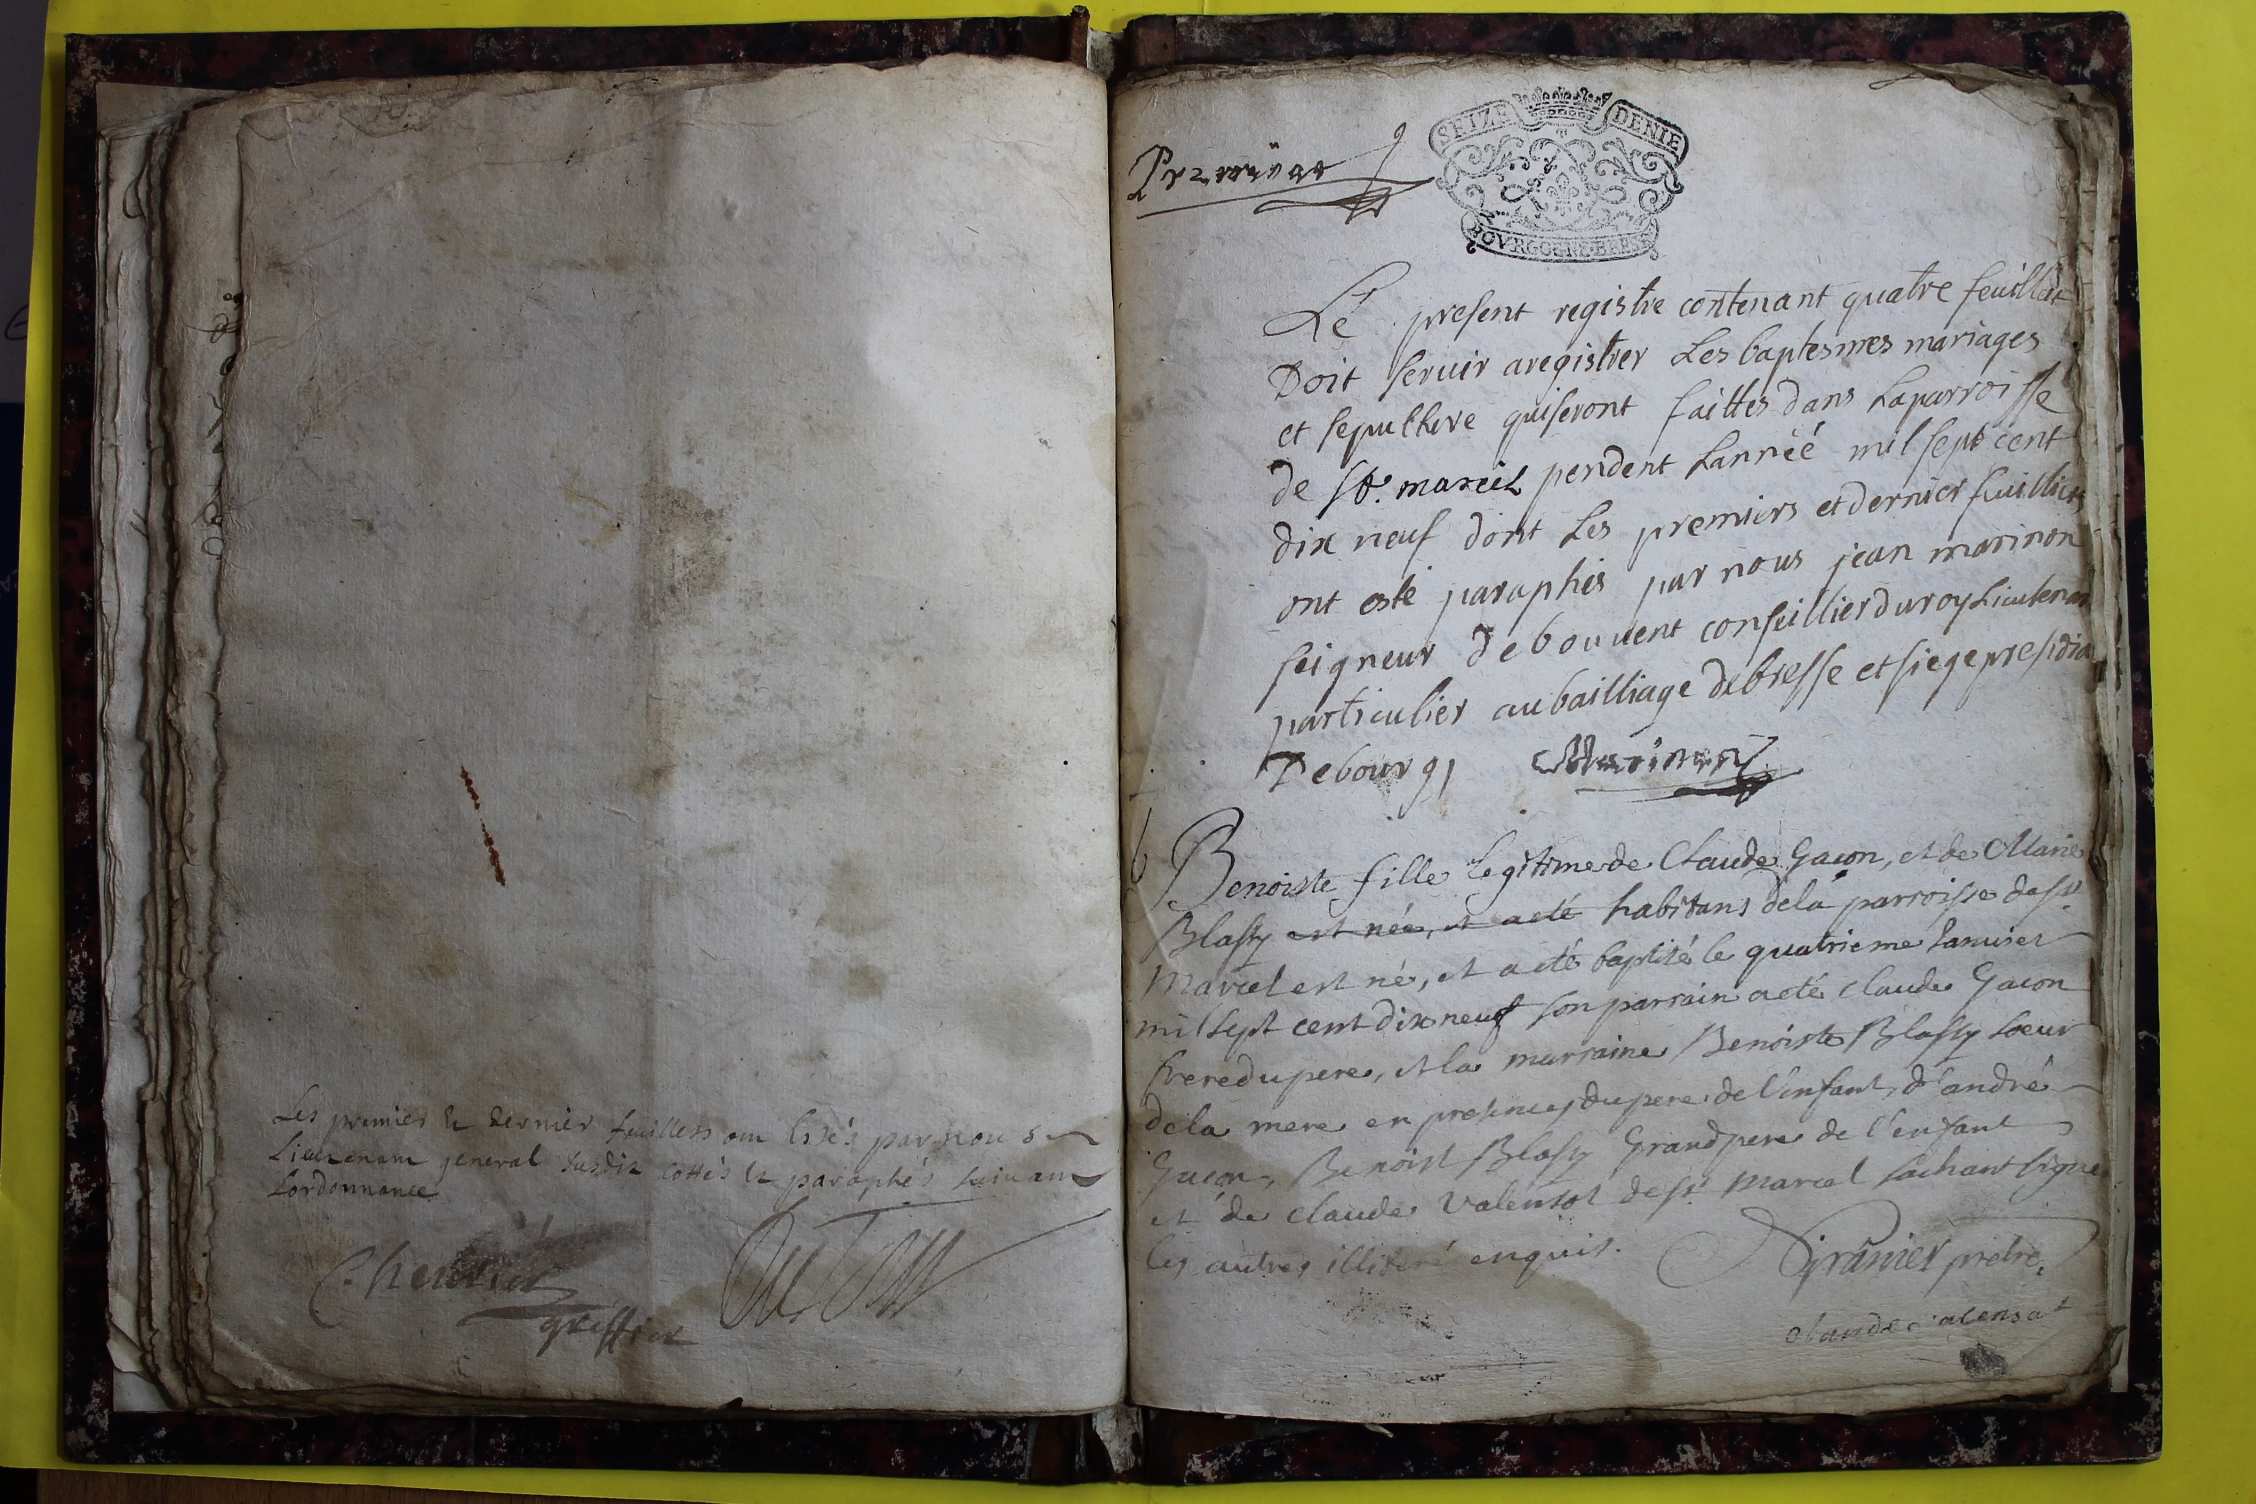 Les premier et dernier feuillets ont estés par nous
Lieutenant general susdit cottés et paraphés suivant
Lordonnance
greffier
Premier
SEIZE DENIE
BOVRGOGNE BRESSE
Lé present registre contenant quatre feuillet
Doit servir aregistrer Les baptesmes mariages
et sepulture quiseront faittes dans Laparroisse
de St. marcel pendent Lanneé mil sept cent
dix neuf dont Les premiers et dernier fuilliets
ont esté paraphés par nous jean marinon
seigneur debouvent conseillier du roy Lieutenan
particulier aubailliage debresse et siege presidia
Debourg
Marinon
B
Benoiste fille Legitime de Claude Gacon, et de Marie
Blassy est née, et a eté habitans dela parroisse de St.
Marcel est né, et a eté baptisé le quatrieme Janvier
mil sept cent dix neuf son parrain aeté claude Gacon
frere du pere, et la marraine Benoiste Blassy soeur
dela mere en presences du pere de l'enfant, d'andré
Gacon, Benoist Blassy Grand pere de l'enfant
et de claude Valensot de St. Marcel sachant signer
les autres illiteré enquis.
Granier pretre.
claude valensot